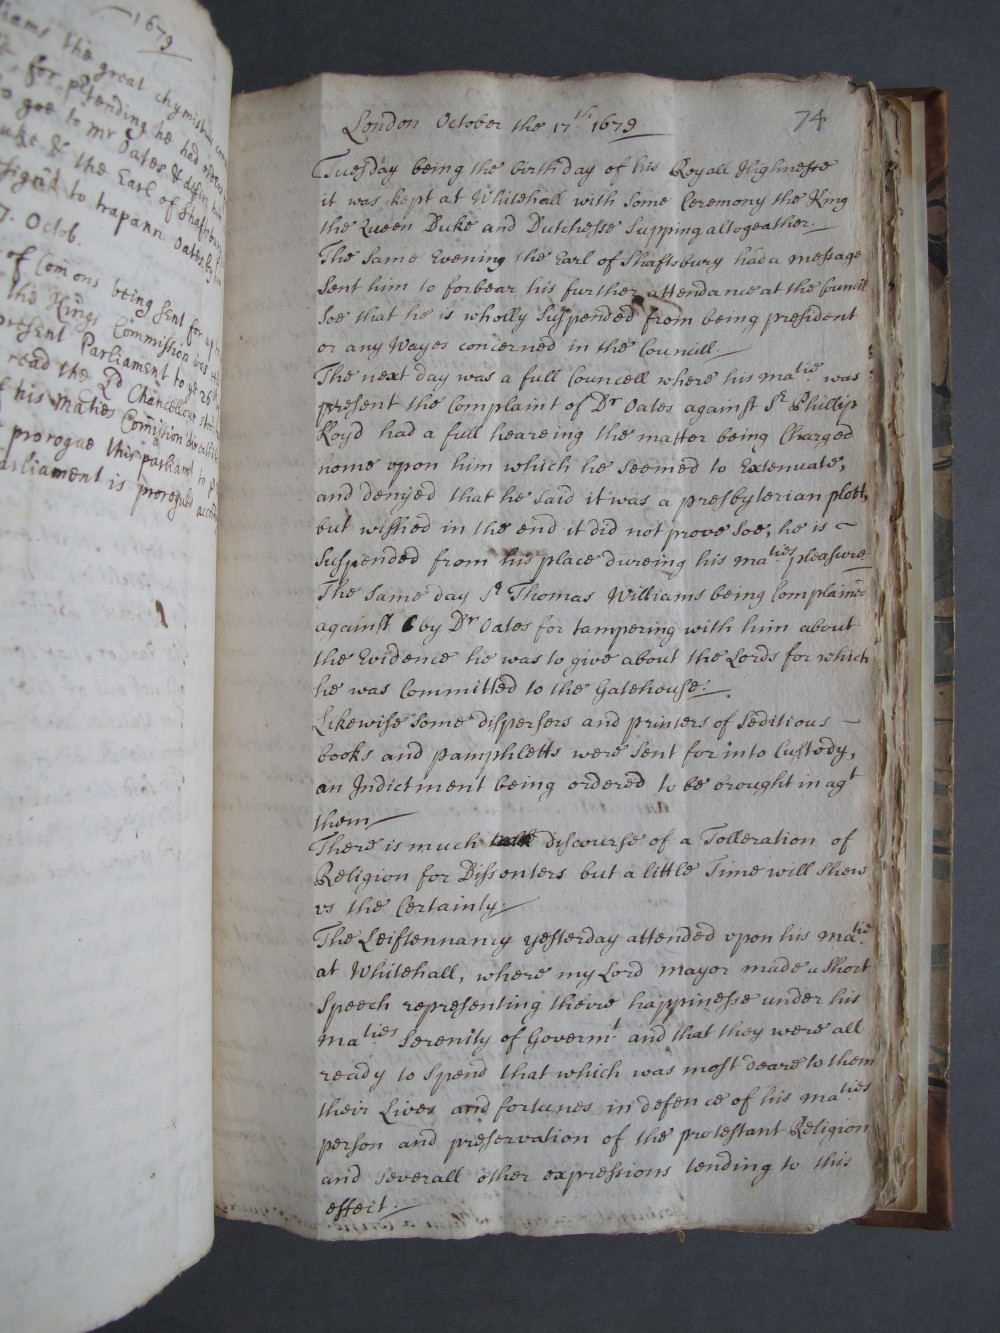 —1679
liams the great chymist
for p̱tending he had
to goe to Mr Oates &
uke & the Earl of Shaftsbury
sign'd to trapann Oates
7. Octob.
of Com̄ons being sent for up
the Kings Com̄ission was
present Parliament to ye 26th
read the Ld Chancellour
f his Maties Com̄ission
prorogue this parliamt to
arliament is prorogued
74
London October the 17th 1679
Tuesday being the birthday of his Royall Highnesse
it was kept at Whitehall with some Ceremony the King
the Queen Duke and Dutchesse Supping altogeather.
The Same Evening the Earl of Shaftsbury had a message
Sent him to forbear his further attendance at the Councill
Soe that he is wholly Suspended from being president
or any Wayes concerned in the Councill.
The next day was a full Councell where his matie was
present the Complaint of Dr Oates against Sr Phillip
Floyd had a full heareing the matter being Charged
home upon him which he seemed to Extenuate,
and denyed that he said it was a presbyterian plott,
but wished in the end it did not prove Soe, he is ~
Suspended from his place dureing his maties pleasure
The Same day Sr Thomas Williams being Complained
against by Dr Oates for tampering with him about
the Evidence he was to give about the Lords for which
he was Committed to the Gatehouse.
Likewise Some dispersers and printers of Seditious ~
books and pamphletts were Sent for into Custody,
an Indictment being ordered to be brought in agt
them
There is much discourse of a Tolleration of
Religion for Dissenters but a little Time will shew
vs the Certainty.
The Leiftennancy yesterday attended vpon his matie
at Whitehall, where my Lord mayor made a Short
Speech representing theire happinesse under his
maties Serenity of Governmt and that they were all
ready to Spend that which was most deare to them
their Lives and fortunes in defence of his maties
person and preservation of the protestant Religion
and severall other expressions tending to this
effect.